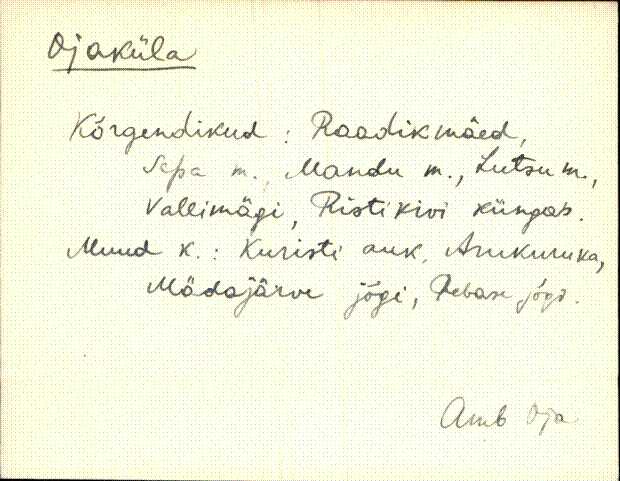 Ojaküla
Kõrgendikud : Raadikmäed,
Sepa m., Mandu m., Lutsu m.,
Vallimägi, Ristikivi küngas.
Muud k. : Kuristi auk, Arukuruka,
Mädajärve jõgi, Rebase jõgi.
Amb Oja